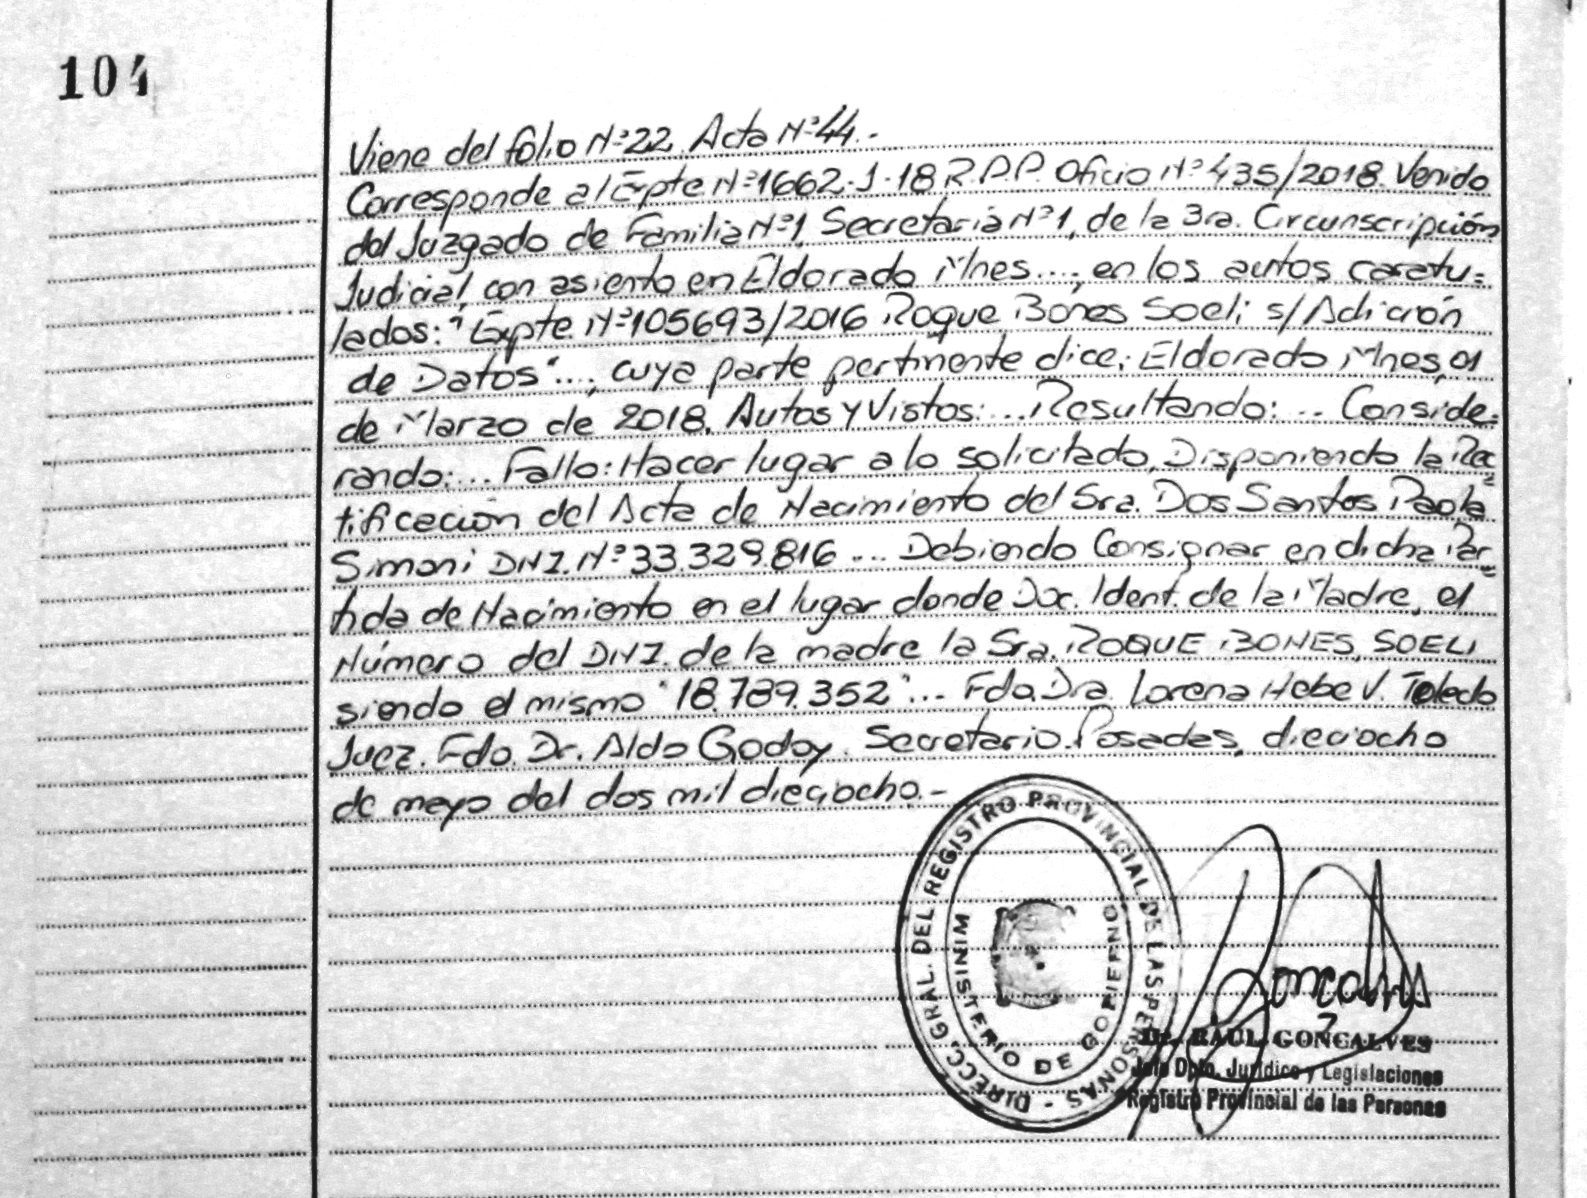 104
Viene del folio Nº22. Acta Nº44.-
Corresponde al Expte. Nº1662-J-18 R.P.P. Oficio Nº435/2018. Venido
del Juzgado de Familia Nº1, Secretaria Nº1, de la 3ra. Circunscripción
Judicial, con asiento en Eldorado Mnes...., en los autos caratu=
lados: "Expte. Nº105693/2016 Roque Bones Soeli s/Adición
de Datos"..., cuya parte pertinente dice: Eldorado Mnes, 01
de Marzo de 2018. Autos y Vistos:... Resultando:... Conside=
rando:... Fallo: Hacer lugar a lo solicitado, Disponiendo la Rec=
tificación del Acta de Nacimiento del Sra. Dos Santos Paola
Simoni DNI. Nº33.329.816 ... Debiendo Consignar en dicha Par=
tida de Nacimiento en el lugar donde Doc. Ident. de la Madre, el
Número del DNI. de la madre la Sra. ROQUE BONES, SOELI
siendo el mismo "18.789.352"... Fdo. Dra. Lorena Hebe V. Toledo
Juez. Fdo. Dr. Aldo Godoy. Secretario. Posadas, dieciocho
de mayo del dos mil dieciocho.-
DIRECC. GRAL. DEL REGISTRO PROVINCIAL DE LAS PERSONAS -
MINISTERIO DE GOBIERNO
Goncalves
Dr. RAUL GONCALVES
Jefe Dpto. Jurídico y Legislaciones
Registro Provincial de las Personas